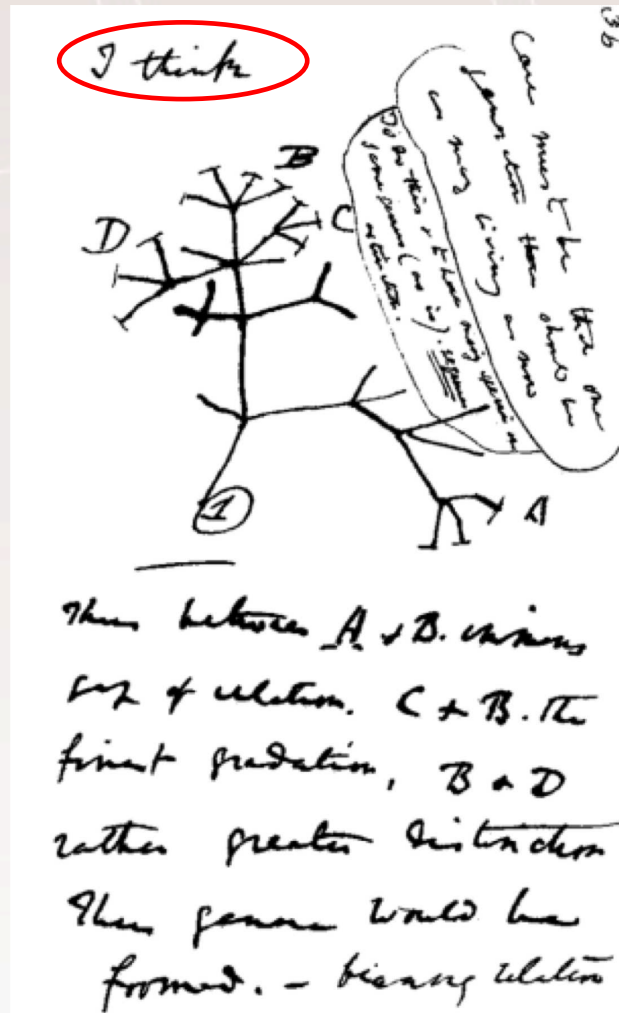 I think
36
Case must be that one
generation then should be
as many living as now
To do this & to have many species in
same genus (as is). requires
extinction.
B
C
D
A
1
Thus between A & B. immense
gap of relation. C & B. the
finest gradation, B & D
rather greater distinction
Thus genera would be
formed. – bearing relation